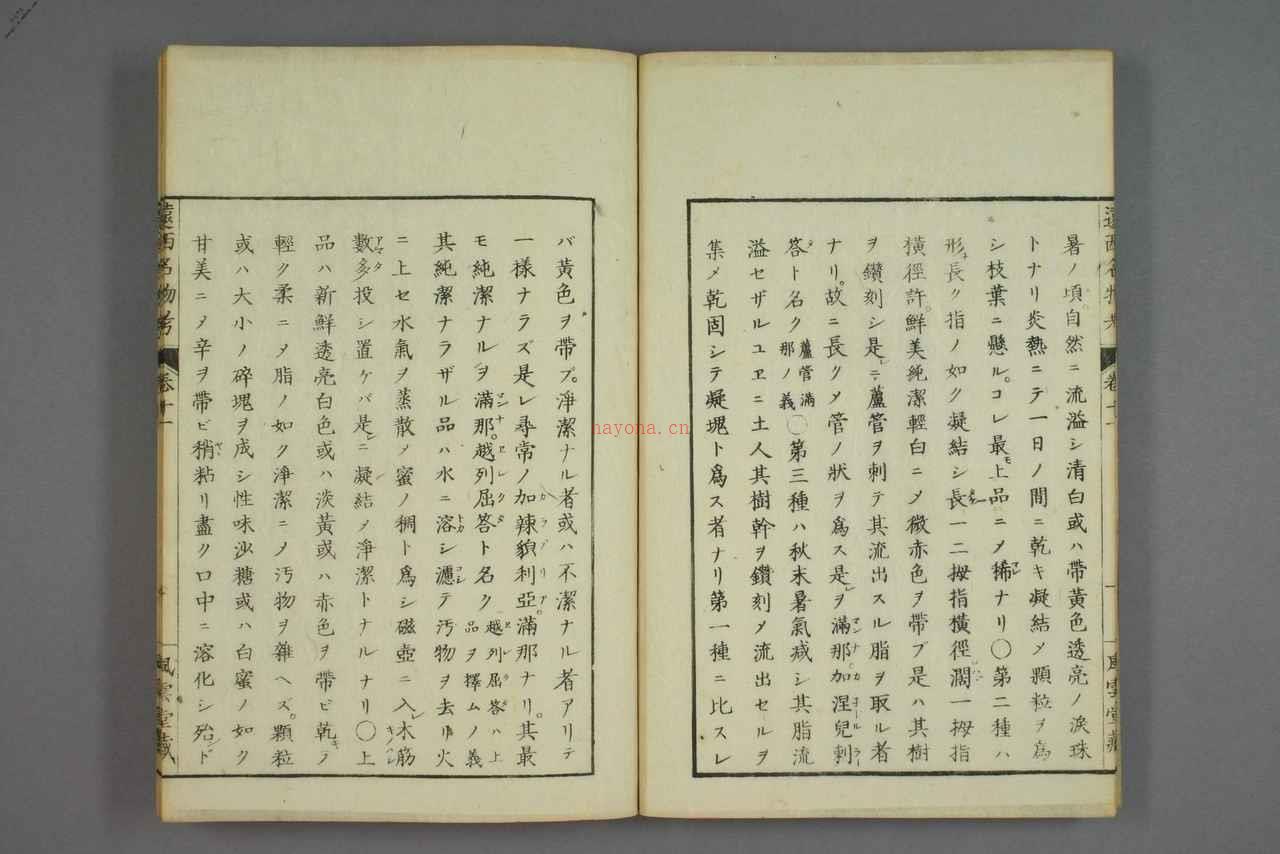 暑ノ頃自然ニ流溢シ清白或ハ帶黃色透亮ノ淚珠
トナリ炎熱ニテ一日ノ間ニ乾キ凝結メ顆粒ヲ爲
シ枝葉ニ懸ル。コレ最モ上品ニメ稀ナリ〇第二種ハ
形チ長ク指ノ如ク凝結シ長一二拇指橫徑濶一拇指
橫徑許。鮮美純潔輕白ニメ微赤色ヲ帶ブ是ハ其樹
ヲ鑽刻シ是ニ蘆管ヲ刺テ其流出スル脂ヲ取ル者
ナリ。故ニ長クメ管ノ狀ヲ爲ス是ヲ滿那加涅兒剌
答ト名ク蘆管滿那ノ義〇第三種ハ秋末暑氣减シ其脂流
溢セザルユヱニ土人其樹幹ヲ鑽刻メ流出セルヲ
集メ乾固シテ凝塊ト爲ス者ナリ第一種ニ比スレ
バ黃色ヲ帶ブ。淨潔ナル者或ハ不潔ナル者アリテ
一樣ナラズ是レ尋常ノ加辣貌利亞。滿那ナリ。其最
モ純潔ナルヲ滿那。越列屈答ト名ク越列屈答ハ上品ヲ擇ムノ義
其純潔ナラザル品ハ水ニ溶シ濾テ汚物ヲ去リ火
ニ上セ水氣ヲ蒸散メ蜜ノ稠ト爲シ磁壺ニ入レ木筋
數多投シ置ケバ是ニ凝結メ淨潔トナルナリ〇上
品ハ新鮮透亮白色或ハ淡黃或ハ赤色ヲ帶ビ乾キテ
輕ク柔ニメ脂ノ如ク淨潔ニメ汚物ヲ雜ヘズ。顆粒
或ハ大小ノ碎塊ヲ成シ性味沙糖或ハ白蜜ノ如ク
甘美ニメ辛ヲ帶ビ稍粘リ盡ク口中ニ溶化シ殆ド
遠西名物考
卷十一
風雲堂藏
hayona.cn